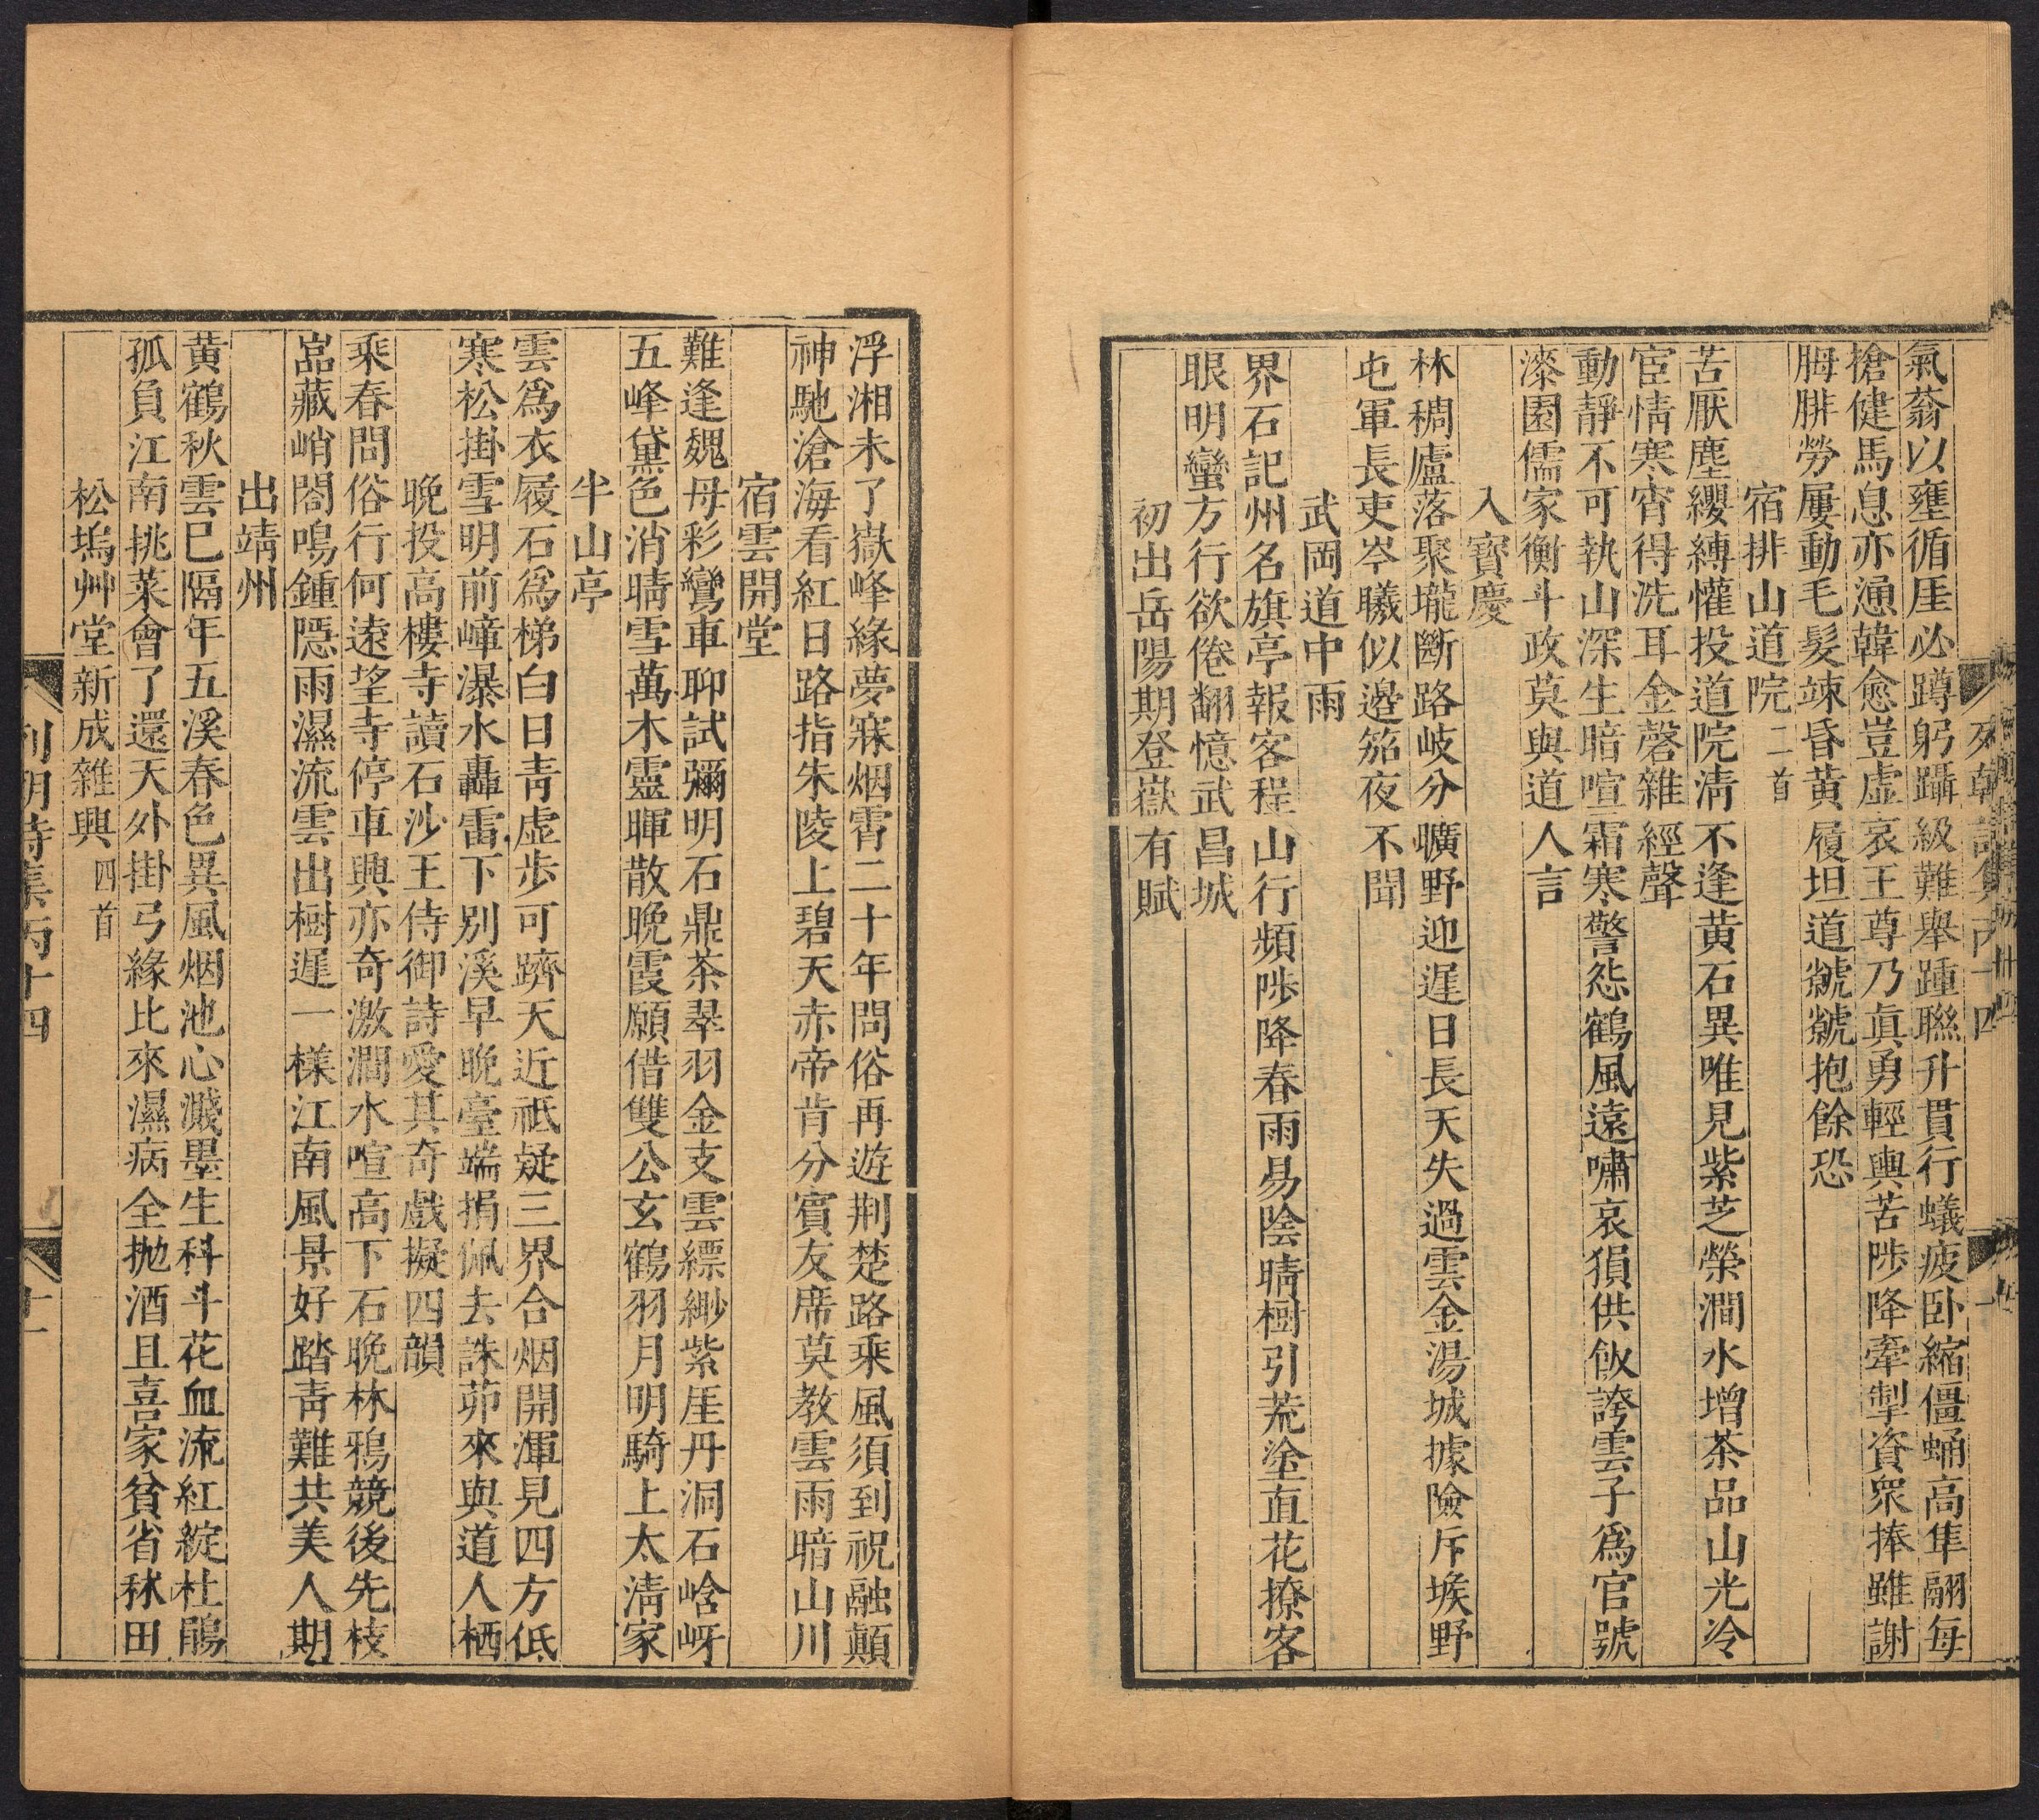 氣蓊以壅循厓必蹲躬躡級難舉踵聯升貫行蟻疲卧縮僵蛹高隼翮每
搶健馬息亦漁韓愈豈虛哀王尊乃眞勇輕輿苦陟降牽掣資衆捧雖謝
胟腓勞屢動毛髮竦昏黃履坦道虩虩抱餘恐
宿排山道院二首
苦厭塵纓縛懽投道院淸不逢黃石異唯見紫芝榮澗水增茶品山光冷
宦情寒宵得洗耳金磬雜經聲
動靜不可執山深生暗喧霜寒警怨鶴風遠嘯哀猨供飯誇雲子爲官號
漆園儒家衡斗政莫與道人言
入寳慶
林稠廬落聚壠斷路岐分曠野迎遲日長天失過雲金湯城據險斥堠野
屯軍長吏岑曦似邉笳夜不聞
武岡道中雨
界石記州名旗亭報客程山行頻陟降春雨易陰晴樹引荒塗直花撩客
眼明蠻方行欲倦翻憶武昌城
初出岳陽期登嶽有賦
浮湘未了嶽峰緣夢寐烟霄二十年問俗再遊荆楚路乘風須到祝融顛
神馳滄海看紅日路指朱陵上碧天赤帝肯分賓友席莫教雲雨暗山川
宿雲開堂
難逢魏母彩鸞車聊試彌明石鼎茶翠羽金支雲縹緲紫厓丹洞石㟏岈
五峰黛色消晴雪萬木靈暉散晚霞願借雙公玄鶴羽月明騎上太淸家
半山亭
雲爲衣履石爲梯白日靑虛步可躋天近祇疑三界合烟開渾見四方低
寒松掛雪明前嶂瀑水轟雷下别溪早晚臺端捐佩去誅茆來與道人栖
晚投高樓寺讀石沙王侍御詩愛其奇戲擬四韻
乘春問俗行何遠望寺停車興亦奇激澗水喧高下石晚林鴉競後先枝
嵓藏峭閣鳴鍾隱雨濕流雲出樹遲一樣江南風景好踏靑難共美人期
出靖州
黃鶴秋雲已隔年五溪春色異風烟池心濺墨生科斗花血流紅綻杜鵑
孤負江南挑菜會了還天外掛弓緣比來濕病全抛酒且喜家貧省秫田
松塢艸堂新成雜興四首
列朝詩集丙十四